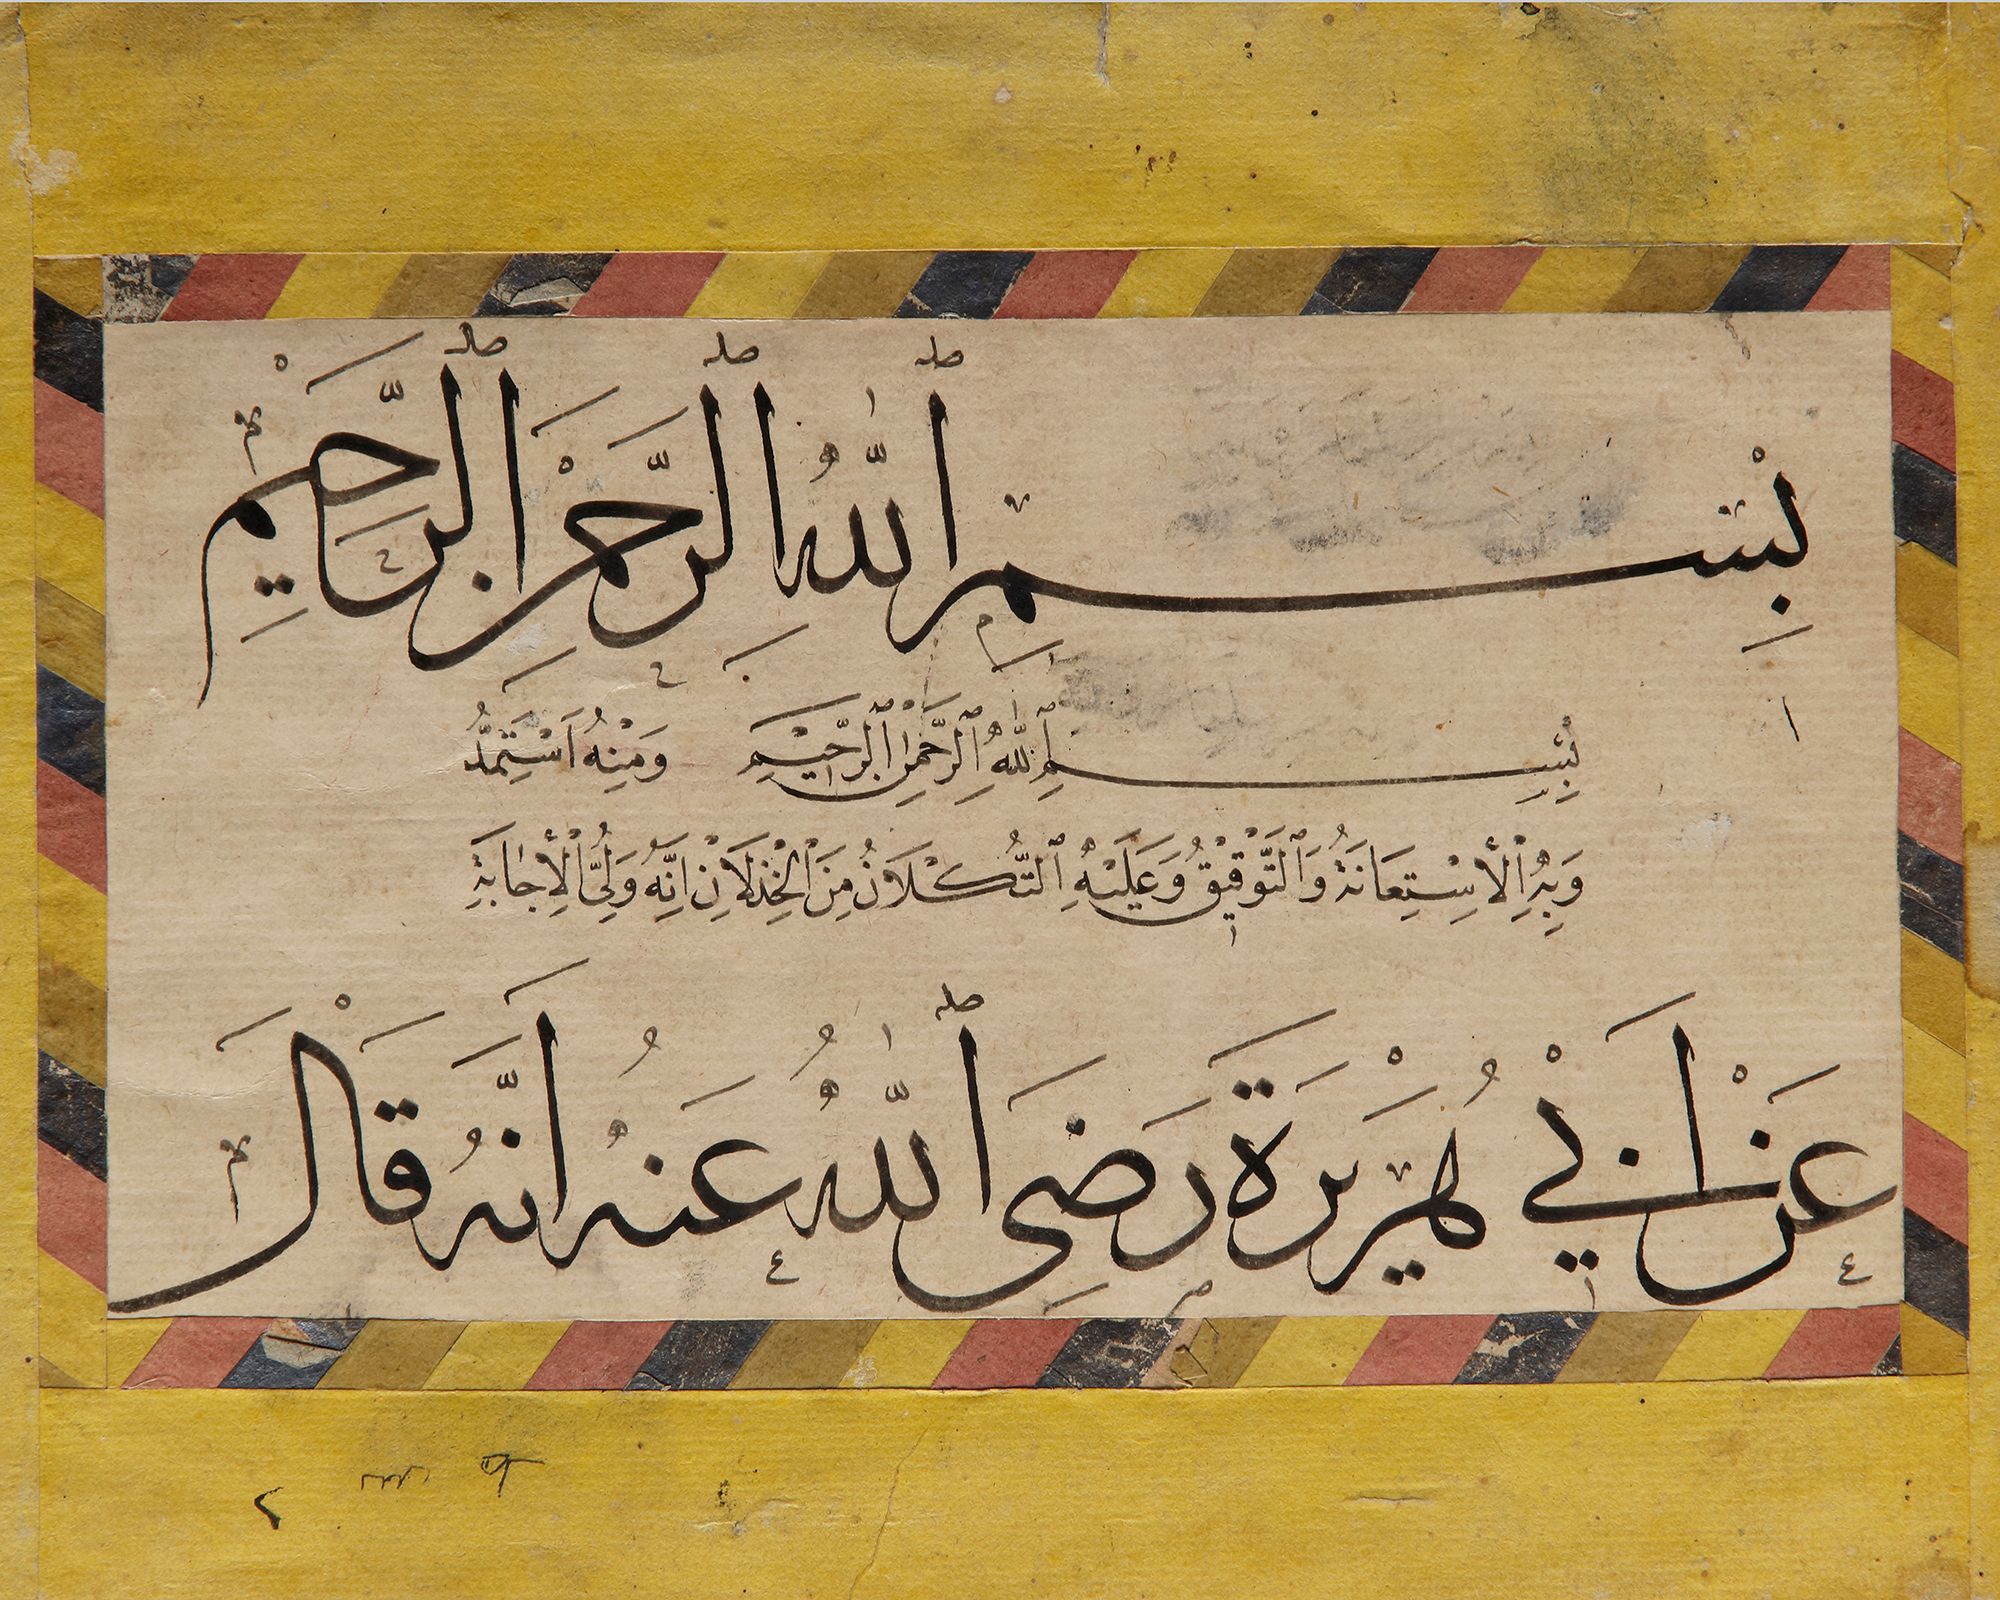 بِسْمِ ٱللّٰهِ ٱلرَّحْمٰنِ ٱلرَّحِيمِ
بِسْمِ ٱللّٰهِ ٱلرَّحْمٰنِ ٱلرَّحِيمِ وَمِنْهُ اَسْتَمِدُّ
وَبِهِ ٱلْاِسْتِعَانَةُ وَٱلتَّوْفِيْقُ وَعَلَيْهِ ٱلتُّكْلَانُ مِنَ ٱلْخِذْلَانِ اِنَّهُ وَلِيُّ الْاِجَابَةِ
عَنْ اَبِيْ هُرَيْرَةَ رَضِيَ ٱللّٰهُ عَنْهُ اَنَّهُ قَالَ